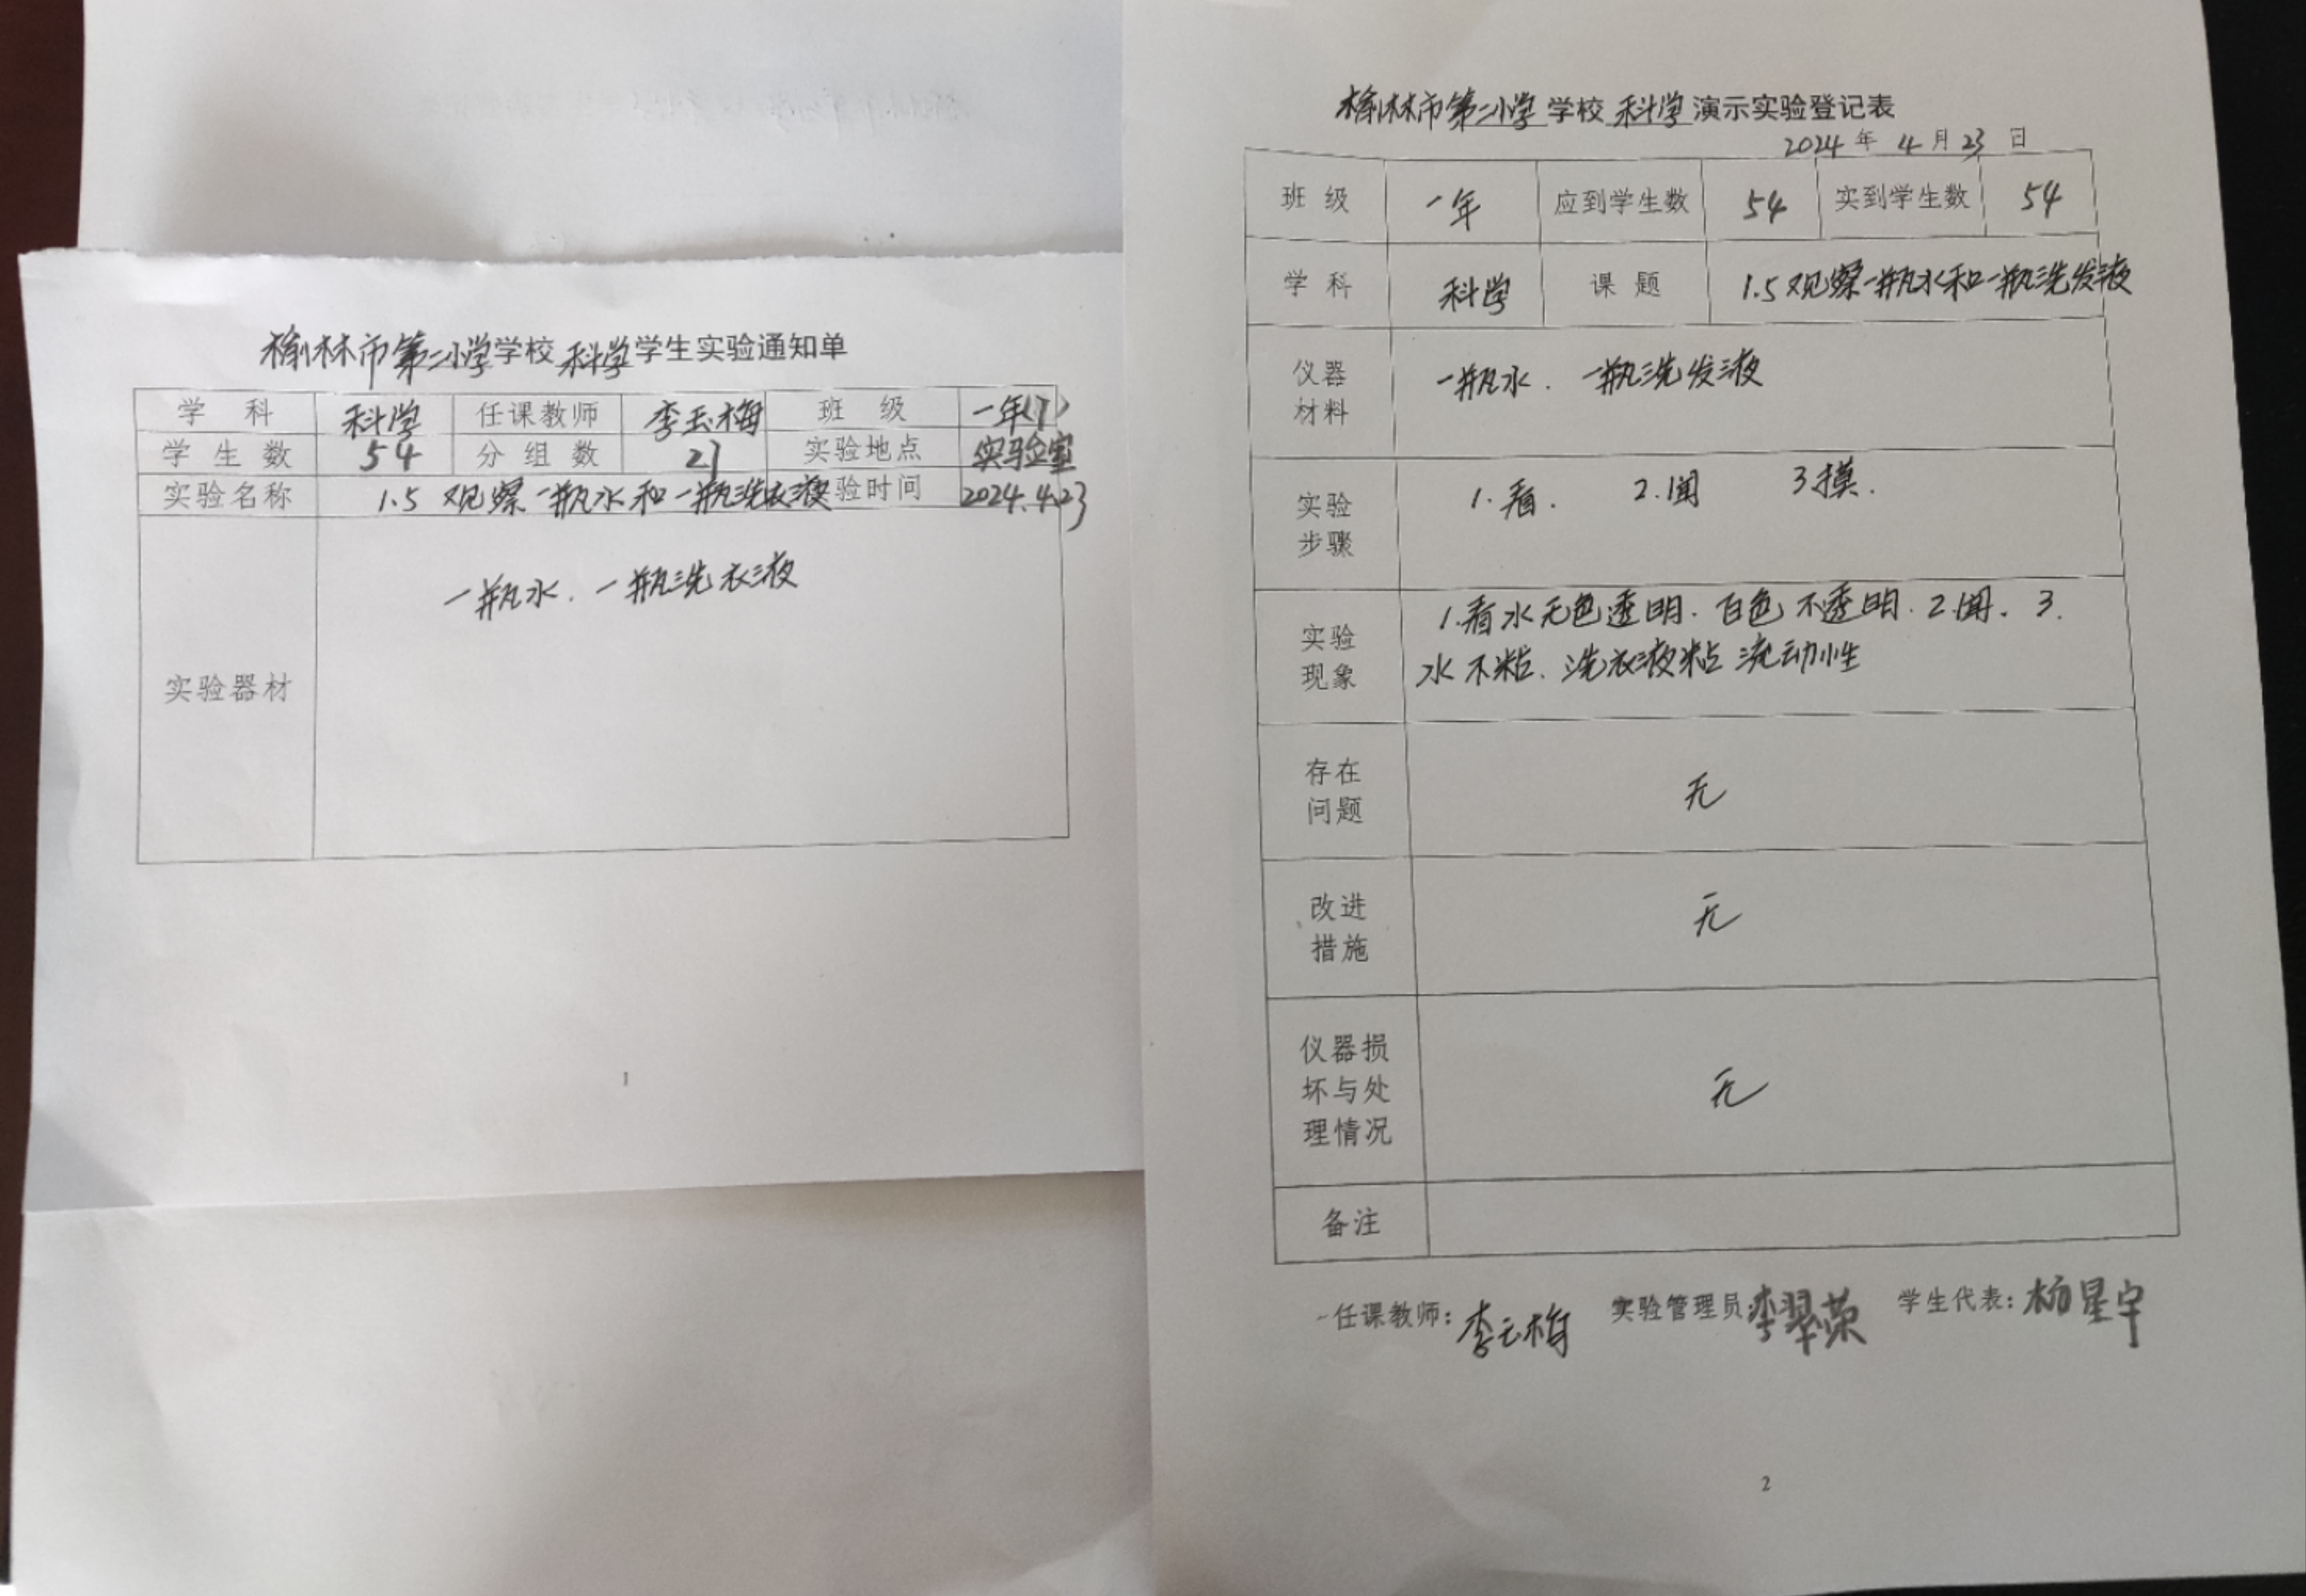 榆林市第二小学学校 科学 学生实验通知单
学 科 科学 任课教师 李玉梅 班 级 一年(7)
学 生 数 54 分 组 数 27 实验地点 实验室
实验名称 1.5 观察一瓶水和一瓶洗衣液 验时间 2024.4.23
实验器材 一瓶水. 一瓶洗衣液
1
榆林市第二小学 学校 科学 演示实验登记表
2024 年 4 月 23 日
班 级 一年 应到学生数 54 实到学生数 54
学 科 科学 课 题 1.5 观察一瓶水和一瓶洗发液
仪器
材料
一瓶水. 一瓶洗发液
实验
步骤
1.看. 2.闻 3摸.
实验
现象
1.看水无色透明. 白色不透明. 2.闻. 3.
水不粘. 洗衣液粘 流动性
存在
问题
无
改进
措施
无
仪器损
坏与处
理情况
无
备注
任课教师: 李玉梅 实验管理员: 李翠荣 学生代表: 杨星宇
2